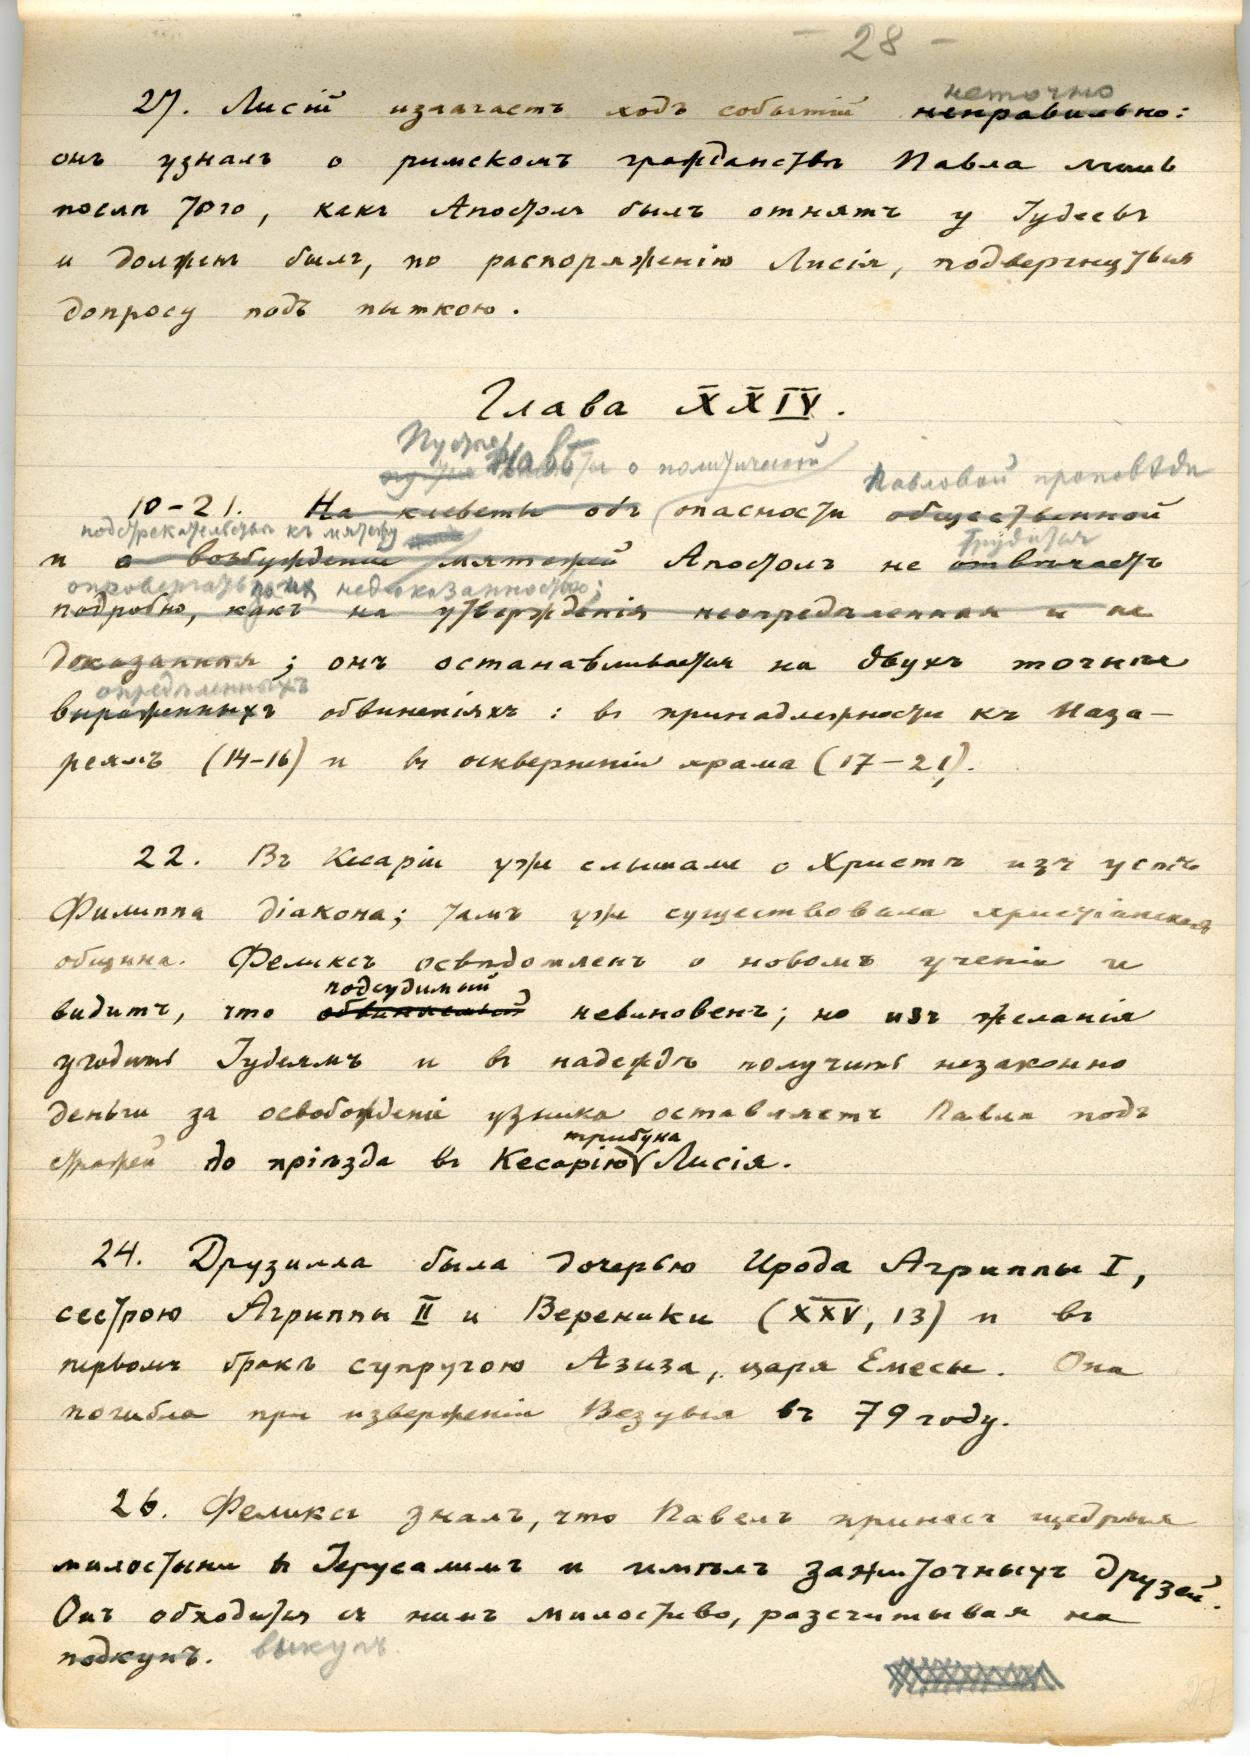 - 28 -
неточно
27. Лисій излагаетъ ходъ событій неправильно:
онъ узналъ о римскомъ гражданствѣ Павла лишь
послѣ того, какъ Апостолъ былъ отнятъ у Іудеевъ
и долженъ былъ, по распоряженію Лисія, подвергнуться
допросу подъ пыткою.
Глава XXIV.
Пустые навѣты о политической Павловой проповѣди
10-21. На клеветы объ опасности общественной
подстрекательствѣ къ мятежу трудится
и о возбужденіи мятежей Апостолъ не отвѣчаетъ
опровергать по ихъ недоказанности;
подробно, какъ на утвержденія неопредѣленныя и не
доказанныя; онъ останавливается на двухъ точнѣе
опредѣленныхъ
выраженныхъ обвиненіяхъ: въ принадлежности къ Наза-
реямъ (14-16) и въ оскверненіи храма (17-21).
22. Въ Кесаріи уже слышали о Христѣ изъ устъ
Филиппа діакона; тамъ уже существовала христіанская
община. Феликсъ освѣдомленъ о новомъ ученіи и
подсудимый
видитъ, что обвиняемый невиновенъ; но изъ желанія
угодить Іудеямъ и въ надеждѣ получить незаконно
деньги за освобожденіе узника оставляетъ Павла подъ
трибуна
стражей до пріѣзда въ Кесарію Лисія.
24. Друзилла была дочерью Ирода Агриппы I,
сестрою Агриппы II и Вереники (XXV, 13) и въ
первомъ бракѣ супругою Азиза, царя Емесы. Она
погибла при изверженіи Везувія въ 79 году.
26. Феликсъ зналъ, что Павелъ принесъ щедрыя
милостыни въ Іерусалимъ и имѣлъ зажиточныхъ друзей.
Онъ обходится съ нимъ милостиво, разсчитывая на
подкупъ. выкупъ.